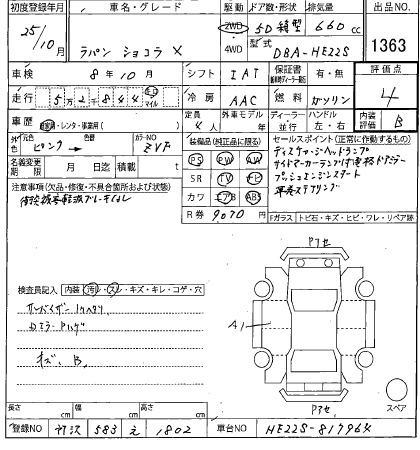 初度登録年月 車名・グレード 駆動 ドア数・形状 排気量 出品NO.
25/10月 ラパン ショコラ X 2WD・4WD 5D 箱型 660cc 1363
型式 DBA-HE22S
車検 8年10月 シフト IAT 保証書 有・無 評価点 4
走行 5万2千844 マイル 冷房 AAC 燃料 ガソリン
車歴 自家用・レンタ・事業用( ) 定員 4人 外車モデル 年 ディーラー 並行 ハンドル 左・右 内装評価 B
元色 ピンク → 色替 カラーNO ZVF
装備品(純正品に限る) セールスポイント(正常に作動するもの)
名義変更期限 月 日迄 積載 t
PS PW AW
SR TV ナビ
カワ エアB ABS
R券 9070円
ディスチャージヘッドランプ
サイドマーカーランプ付電格ドアミラー
プッシュエンジンスタート
革巻ステアリング
注意事項(欠品・修復・不具合箇所および状態)
Fガラス トビ石・キズ・ヒビ・ワレ・リペア跡
検査員記入 内装 汚レ・スレ・キズ・キレ・コゲ・穴
キズ、B
A1
スペア
長さ cm 幅 cm 高さ cm
登録NO 583 え 1802 車台NO HE22S-817964